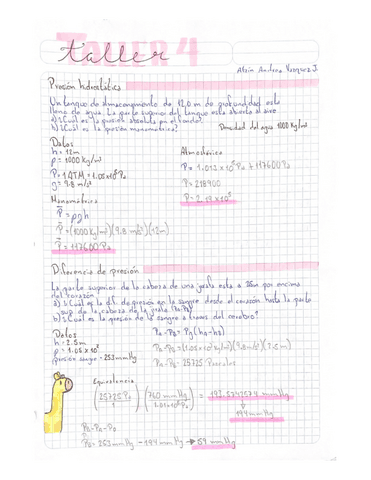 TALLER 4
taller
Presión hidrostática
Un tanque de almacenamiento de 12,0 m de profundidad esta
lleno de agua. La parte superior del tanque esta abierto al aire
a) ¿Cuál es la presión absoluta en el fondo?
b) ¿Cuál es la presión manométrica? Densidad del agua 1000 Kg/m³
Datos
h = 12m
ρ = 1000 Kg/m³
P₀ = 1 ATM = 1.01x10⁵ Pa
g = 9.8 m/s²
Manométrica
P = ρgh
P = (1000 Kg/m³)(9.8 m/s²)(12m)
P = 117600 Pa
Atmosférica
P = 1.013 x 10⁵ Pa + 117600 Pa
P = 218900
P = 2.19 x 10⁵
Diferencia de presión
La parte superior de la cabeza de una jirafa esta a 2.5m por encima
del corazón.
a) ¿Cuál es la dif. de presión en la sangre desde el corazón hasta la parte
sup de la cabeza de la jirafa
b) ¿Cuál es la presión de sangre a través del cerebro?
Datos
h = 2.5m
ρ = 1.05 x 10³
presión sangre = 253 mmHg
25725 Pascales
Equivalencia
(25725 Pa / 1) (760 mmHg / 1.01x10⁵ Pa) = 193.5747574 mmHg
194 mmHg
= 253 mmHg - 194 mmHg → 59 mmHg